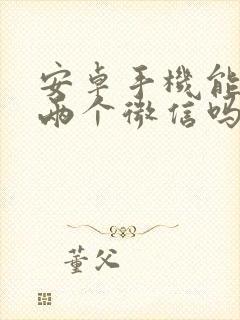 安卓手機能
兩个微信吗
董父